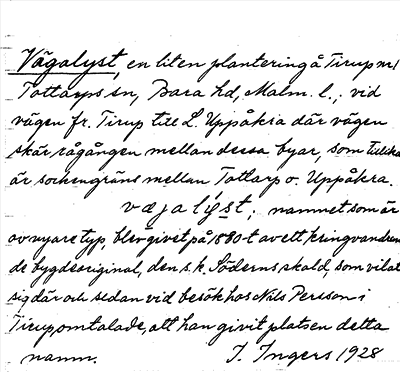 Vägalyst, en liten plantering å Tirup nr 1
Tottarps sn, Bara hd, Malm. l., vid
vägen fr. Tirup till L. Uppåkra där vägen
skär rågången mellan dessa byar, som tillika
är sockengräns mellan Tottarp o. Uppåkra.
vœjalyst; namnet som är
av nyare typ, blev givet på 1880-t av ett kringvandran
de bygdeoriginal, den s.k. Söderns skald, som vilat
sig där och sedan vid besök hos Nils Persson i
Tirup, omtalade, att han givit platsen detta
namn. I. Ingers 1928